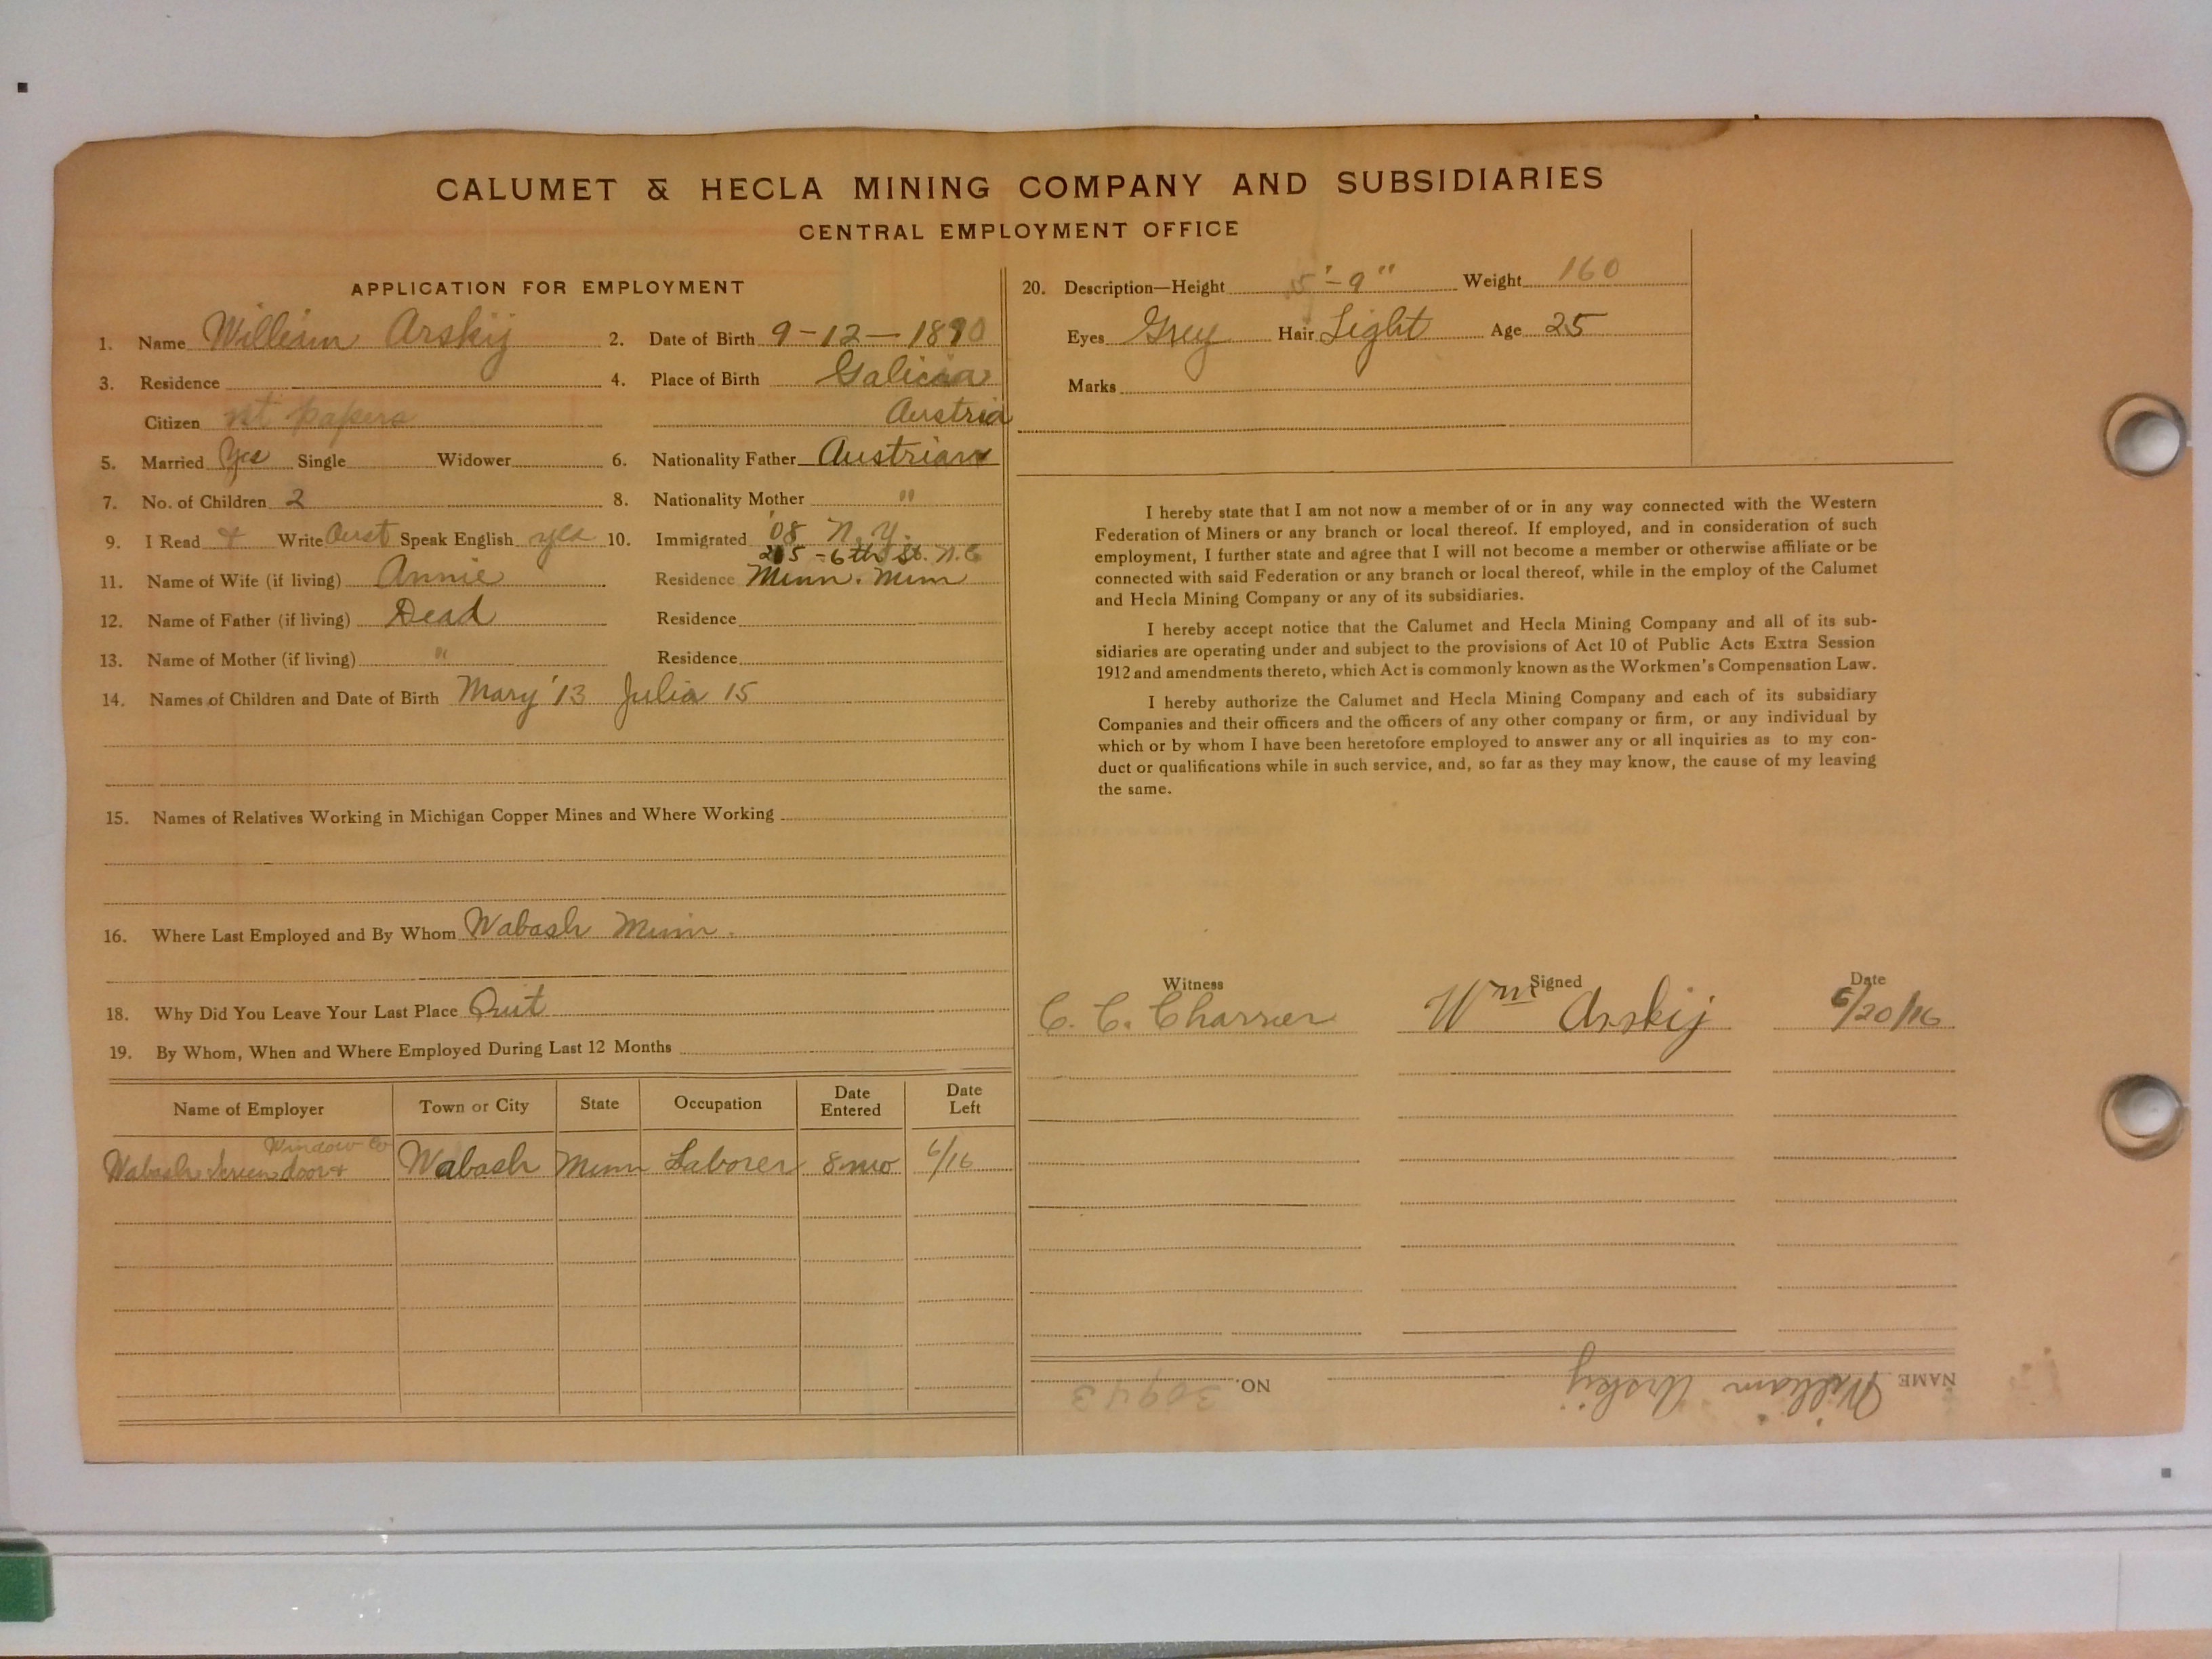 CALUMET & HECLA MINING COMPANY AND SUBSIDIARIES
CENTRAL EMPLOYMENT OFFICE
APPLICATION FOR EMPLOYMENT
1. Name William Arskij 2. Date of Birth 9-12-1890
3. Residence 4. Place of Birth Galicia
Citizen 1st papers Austria
5. Married Yes Single Widower 6. Nationality Father Austrian
7. No. of Children 2 8. Nationality Mother "
9. I Read & Write Aust Speak English yes 10. Immigrated '08 N.Y.
215 - 6th St. N.E
11. Name of Wife (if living) Annie Residence Minn. Minn
12. Name of Father (if living) Dead Residence
13. Name of Mother (if living) " Residence
14. Names of Children and Date of Birth Mary '13 Julia 15
15. Names of Relatives Working in Michigan Copper Mines and Where Working
16. Where Last Employed and By Whom Wabash Minn.
18. Why Did You Leave Your Last Place Quit
19. By Whom, When and Where Employed During Last 12 Months
Name of Employer Town or City State Occupation Date Entered Date Left
Window Co
Wabash Screen door & Wabash Minn Laborer 8 mo 6/16
20. Description—Height 5'-9" Weight 160
Eyes Grey Hair Light Age 25
Marks
I hereby state that I am not now a member of or in any way connected with the Western
Federation of Miners or any branch or local thereof. If employed, and in consideration of such
employment, I further state and agree that I will not become a member or otherwise affiliate or be
connected with said Federation or any branch or local thereof, while in the employ of the Calumet
and Hecla Mining Company or any of its subsidiaries.
I hereby accept notice that the Calumet and Hecla Mining Company and all of its sub-
sidiaries are operating under and subject to the provisions of Act 10 of Public Acts Extra Session
1912 and amendments thereto, which Act is commonly known as the Workmen's Compensation Law.
I hereby authorize the Calumet and Hecla Mining Company and each of its subsidiary
Companies and their officers and the officers of any other company or firm, or any individual by
which or by whom I have been heretofore employed to answer any or all inquiries as to my con-
duct or qualifications while in such service, and, so far as they may know, the cause of my leaving
the same.
Witness Signed Date
C. C. Charrier Wm Arskij 6/20/16
NAME William Arskij NO. 30943